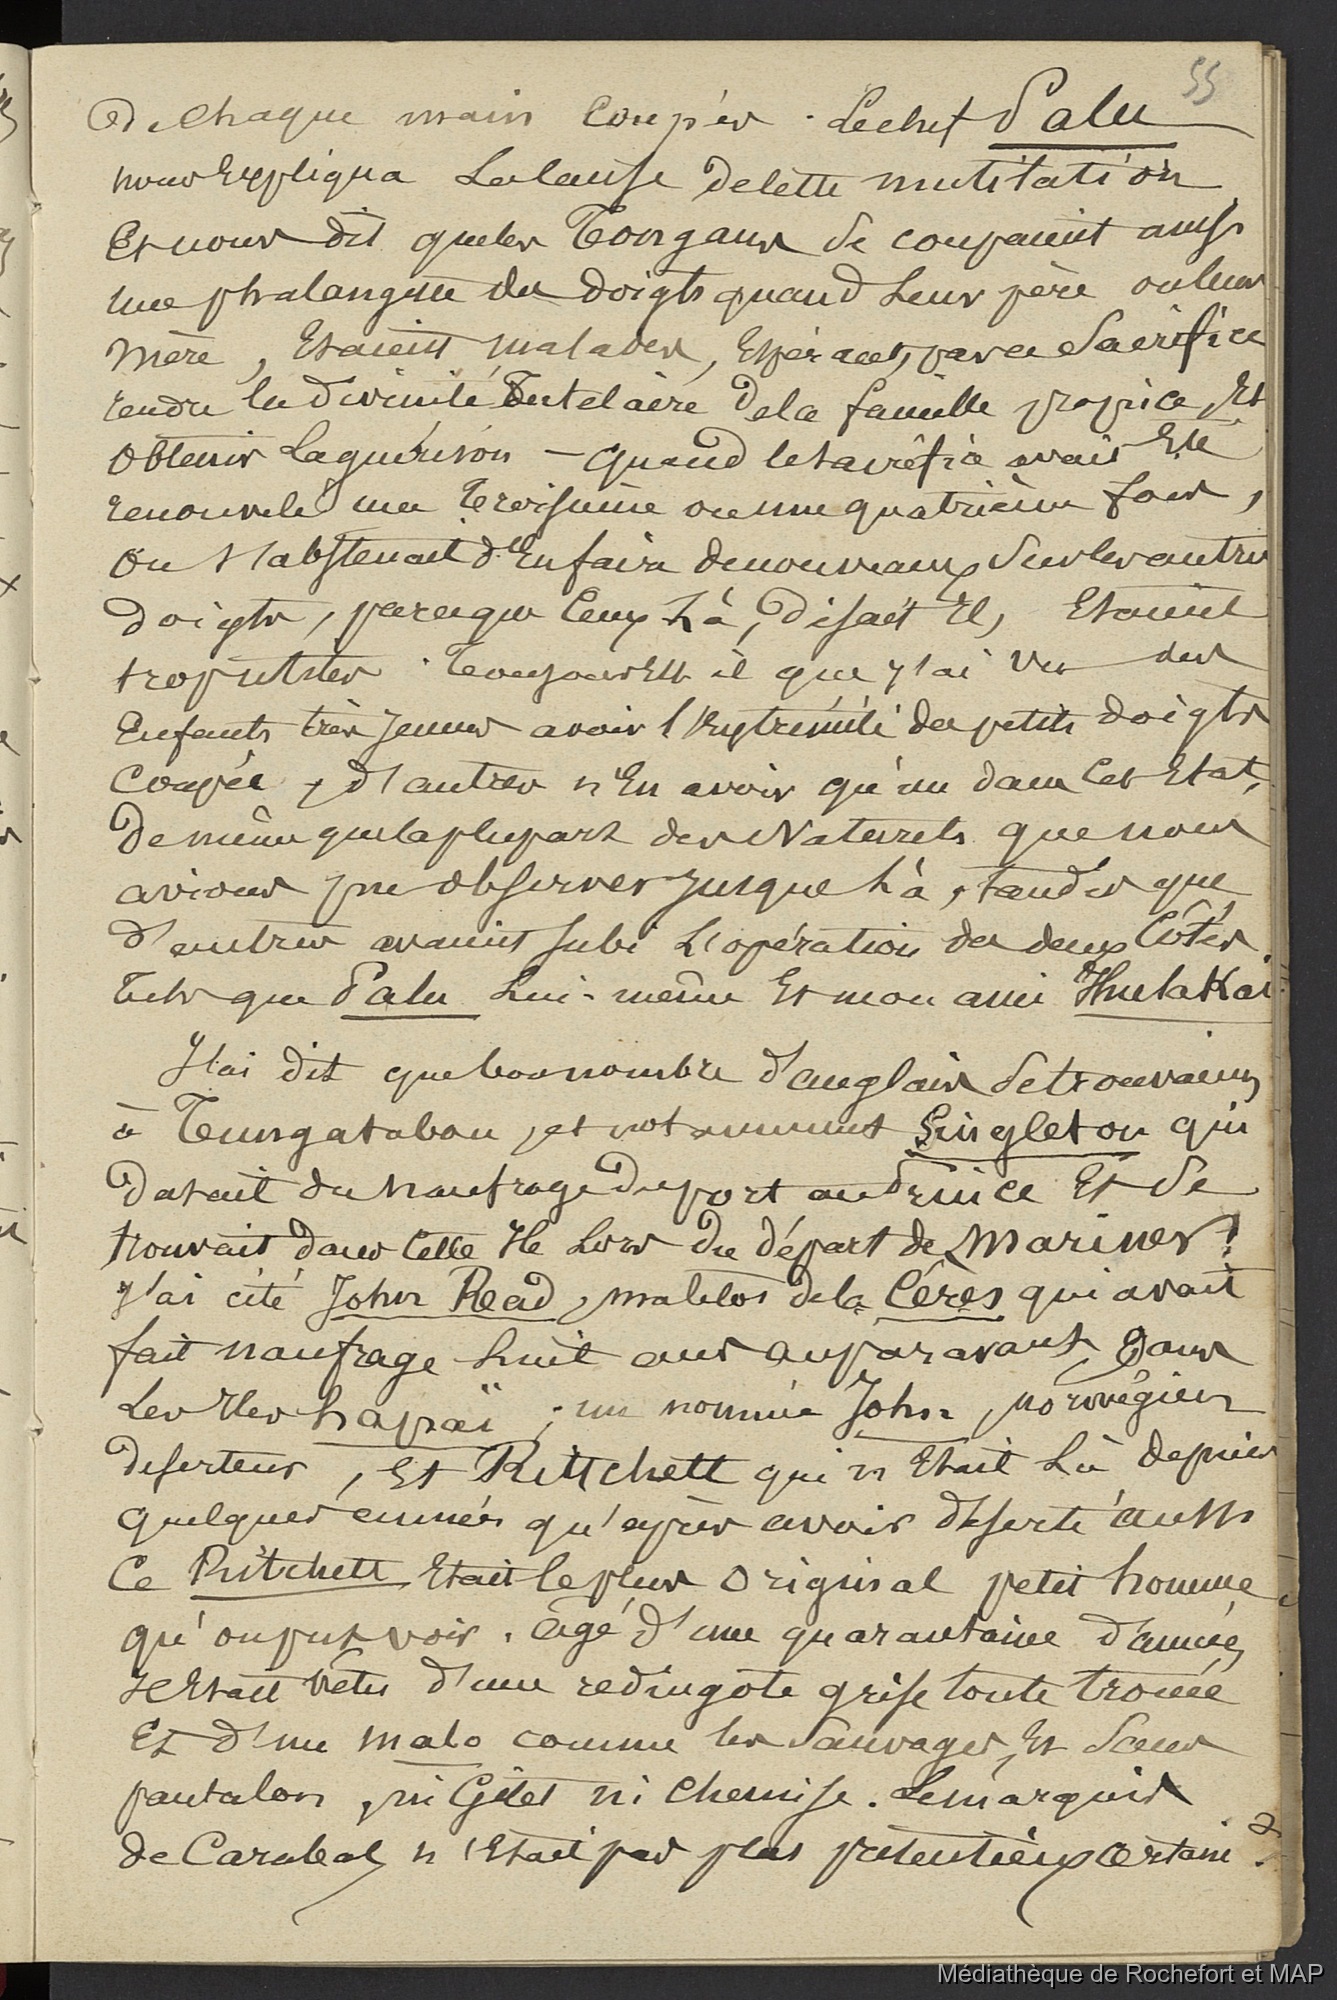 55
De chaque main coupés. Le chef Palu
nous expliqua la cause de cette mutilation
Et nous dit que les Tongans se coupaient aussi
une phalange des doigts quand leur père ou leur
mère, Etaient malades, Espérant, par ce Sacrifice
rendre la divinité tutelaire de la famille propice, Et
obtenir la guérison – quand le sacrifice avait Eté
renouvelé une troisième ou une quatrième fois,
on s'abstenait d'En faire de nouveaux sur les autres
doigts, parce que ceux là, disait Il, Etaient
trop utiles. Toujours Est il que j'ai vu des
Enfants très jeunes avoir l'Extrémité des petits doigts
coupée, d'autres n'En avoir qu'un dans cet Etat,
De même que la plupart des Naturels que nous
avions pu observer jusque là, tandis que
d'autres avaient subi l'opération des deux Côtés
Tels que Palu Lui-même Et mon ami Hulakai
J'ai dit que bon nombre d'anglais se trouvaient
à Tungatabou, et notamment Singleton qui
Datait du naufrage du port au Prince Et se
trouvait dans Cette Ile Lors du départ de Mariner!
j'ai cité John Read, matelot de la Cérès qui avait
fait naufrage huit ans auparavant, Dans
Les Iles hapaï; un nommé John, norwégien
déserteur, Et Rittchett qui n'Etait Là depuis
quelques années qu'après avoir déserté aussi
Ce Ritchett Etait le plus original petit homme
qu'on put voir. agé d'une quarantaine d'années,
Il Etait vêtu d'une redingote grise toute trouée
Et d'un malo comme les Sauvages, Et sans
pantalon, ni Gilet ni chemise. Le marquis
de Carabas n'Etait pas plus prétentieux certain
Médiathèque de Rochefort et MAP